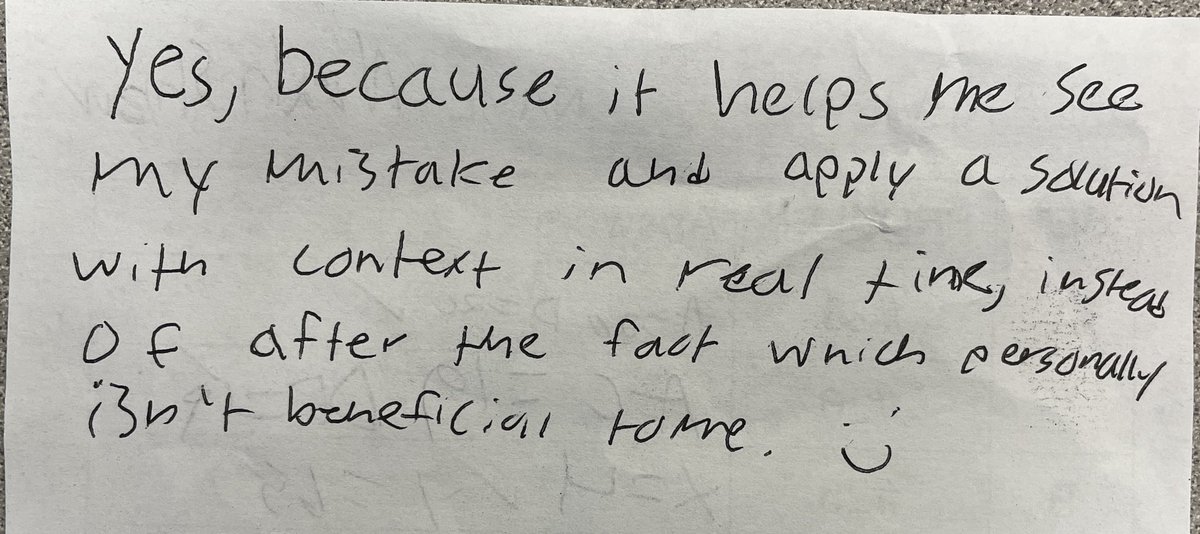 Yes, because it helps me see
my mistake and apply a solution
with context in real time, instead
of after the fact which personally
isn't beneficial to me. :)